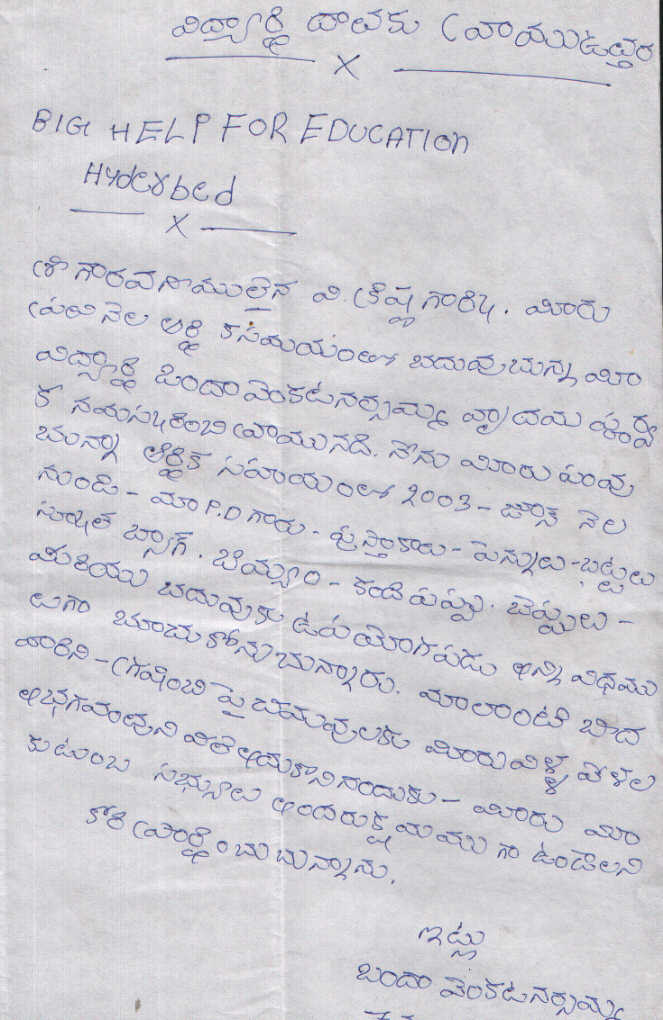 విద్యార్థి దాతకు వ్రాముఉత్తర
X
BIG HELP FOR EDUCATION
Hyderbed
X
శ్రీ గౌరవనాములైన వి. క్రిష్ణ గారికి. మీరు
ప్రతి నెల ఆర్థి కసమయంతో చదువుచున్న మీ
విద్యార్థి బందా వెంకటనర్సమ్మ హ్రదయ పూర్వ
క నమస్కరించి వ్రాయునది. నేను మీరు పంపు
చున్నా ఆర్థిక సహాయంతో 2003 - జూన్ నెల
నుండి - మా P.D గారు - పుస్తాకాలు - పెన్నులు - బట్టలు
స్కూల్ బ్యాగ్. బియ్యం - కంది పప్పు. చెప్పులు -
మరియు చదువుకు ఉపయోగపడు అన్ని విధము
లుగా చూచుకోనుచున్నారు. మాలాంటి బీద
వారిని - గ్రహించి పై చదువులకు మీరు వెళ్ళ వేళల
ఆభగవంతుని
కుటుంబ సభ్యులు అందరు క్షేమముగా ఉండాలని
కోరి ప్రార్థించుచున్నాను.
ఇట్లు
బందా వెంకటనర్సమ్మ